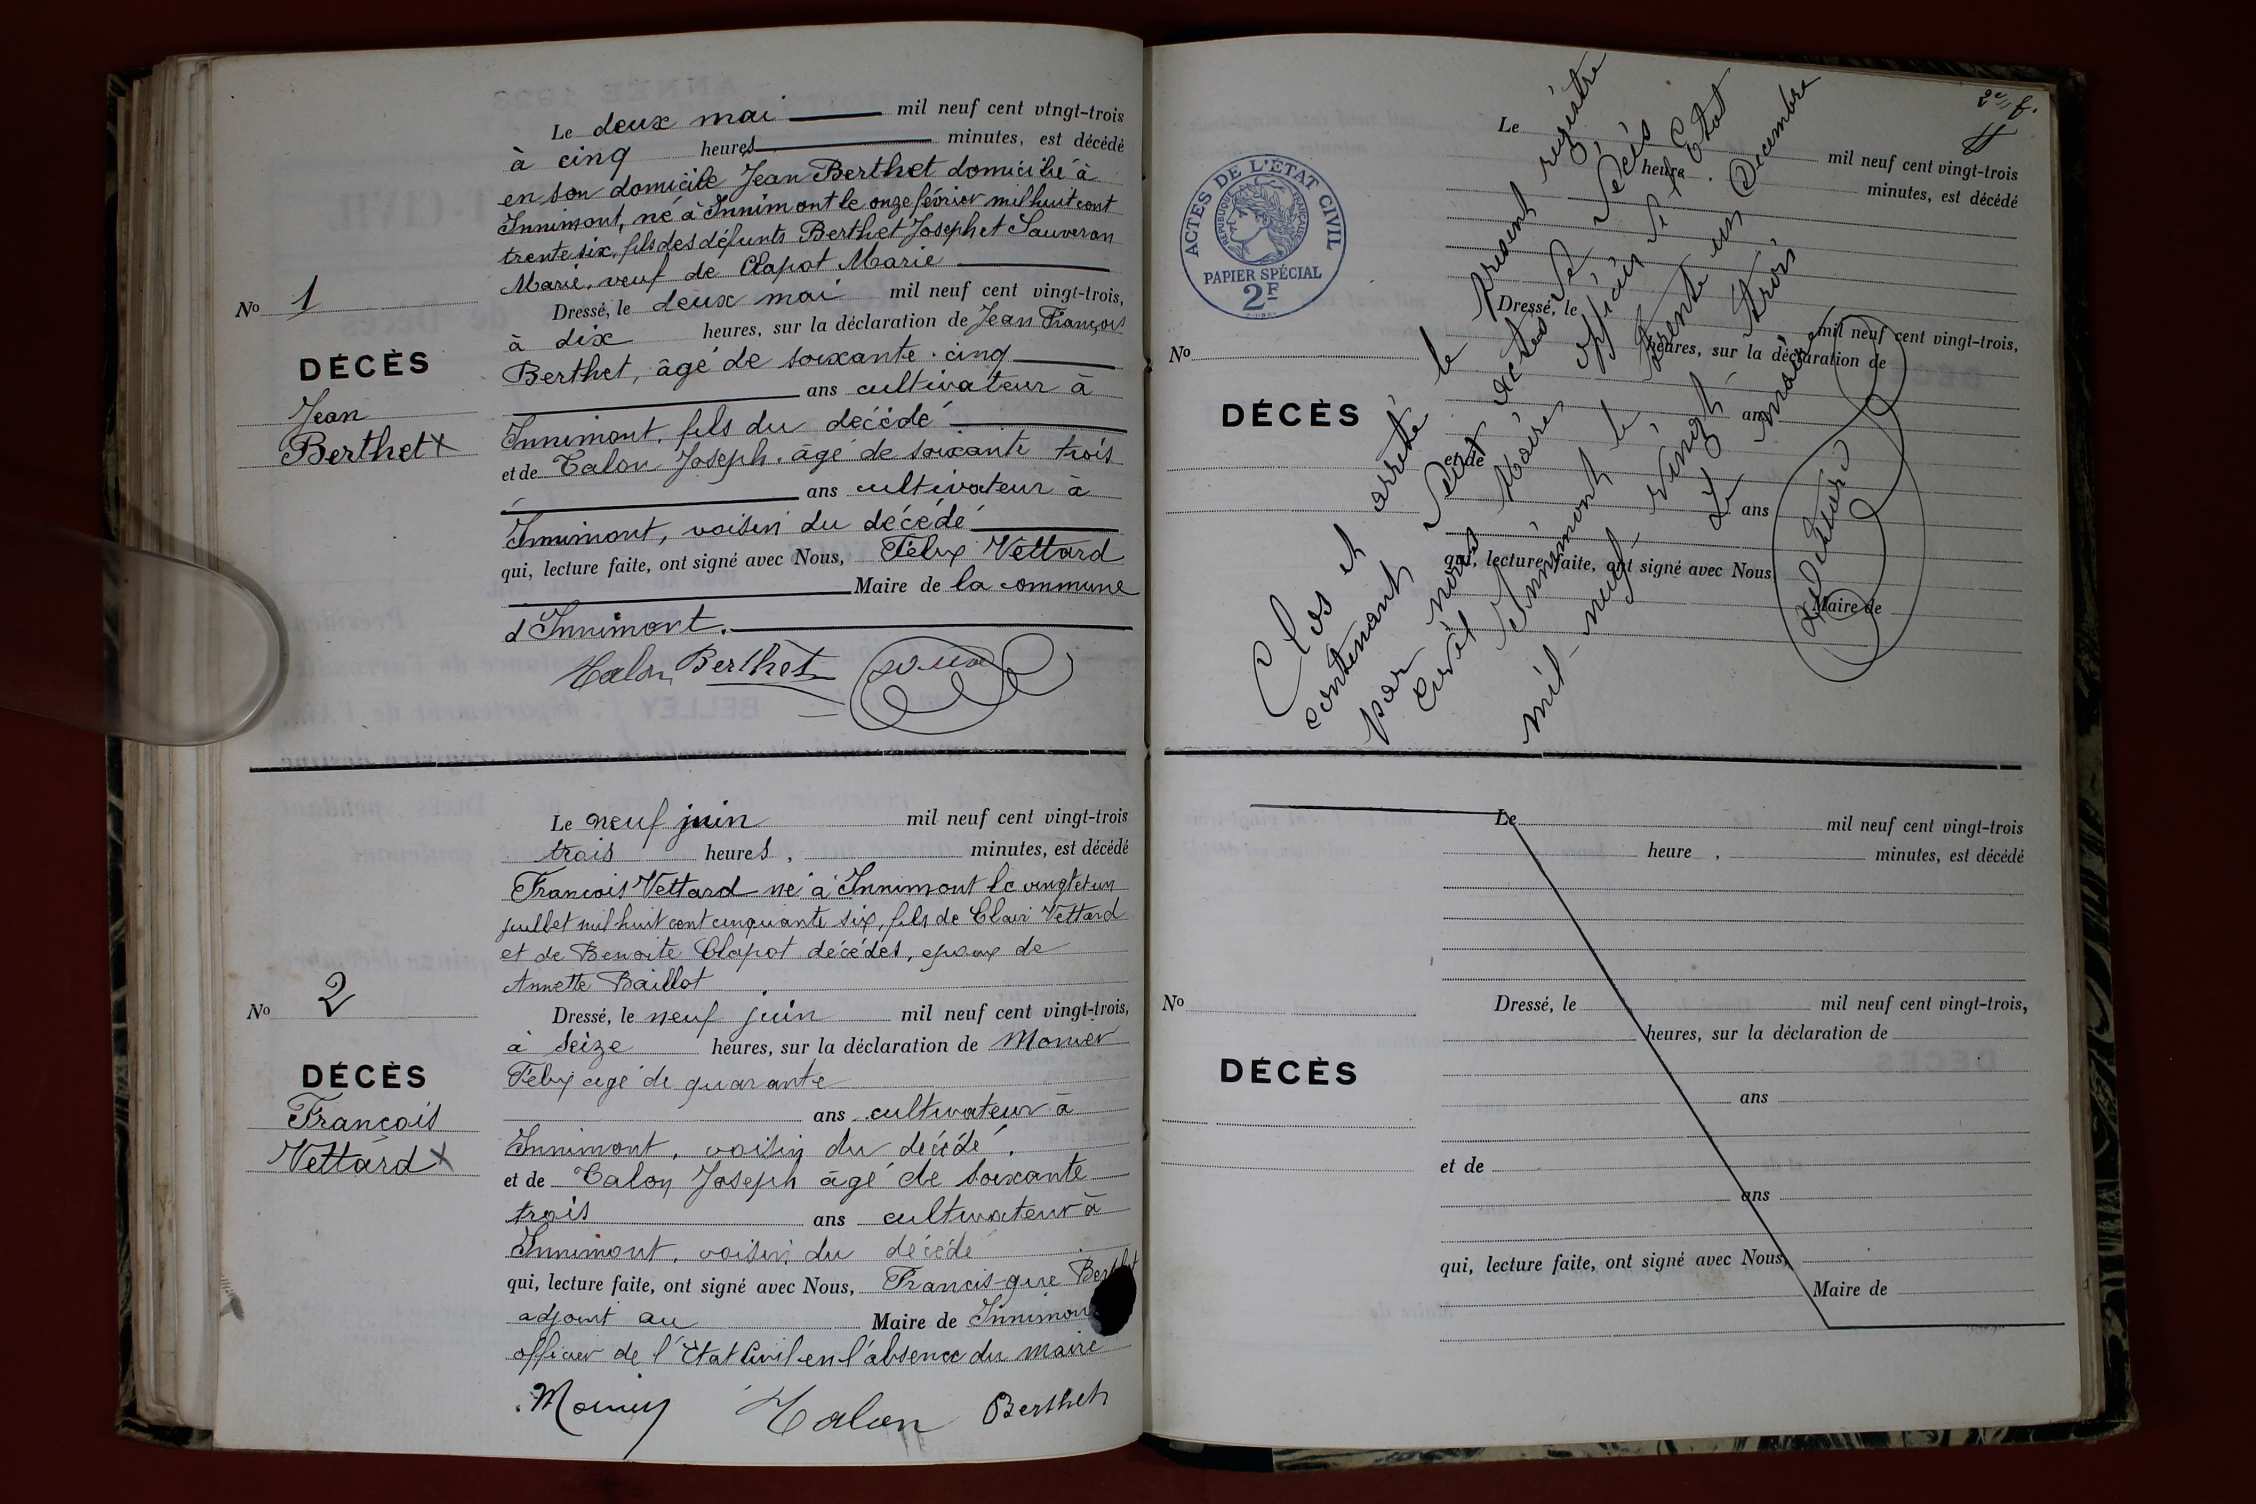 Le deux mai mil neuf cent vingt-trois
à cinq heures minutes, est décédé
en son domicile Jean Berthet domicilié à
Innimont, né à Innimont le onze février mil huit cent
trente six, fils des défunts Berthet Joseph et Sauveron
Marie, veuf de Clapot Marie
Dressé, le deux mai mil neuf cent vingt-trois,
à dix heures, sur la déclaration de Jean François
Berthet, âgé de soixante-cinq
ans cultivateur à
Innimont, fils du décédé
et de Talon Joseph, âgé de soixante trois
ans cultivateur à
Innimont, voisin du décédé
qui, lecture faite, ont signé avec Nous, Félix Vettard
Maire de la commune
d'Innimont.
Talon Berthet
No 1
DÉCÈS
Jean
Berthet x
Le neuf juin mil neuf cent vingt-trois
trois heures, minutes, est décédé
François Vettard né à Innimont le vingt et un
juillet mil huit cent cinquante six, fils de Clair Vettard
et de Benoite Clapot décédés, époux de
Annette Baillot
Dressé, le neuf juin mil neuf cent vingt-trois,
à seize heures, sur la déclaration de Monier
Félix agé de quarante
ans cultivateur à
Innimont, voisin du décédé,
et de Talon Joseph âgé de soixante
trois ans cultivateur à
Innimont, voisin du décédé
qui, lecture faite, ont signé avec Nous, Francis-que Berthet
adjoint au Maire de Innimont
officier de l'Etat Civil en l'absence du maire
Talon Berthet
No 2
DÉCÈS
François
Vettard x
2e f.
ACTES DE L'ÉTAT CIVIL
RÉPUBLIQUE FRANÇAISE
PAPIER SPÉCIAL
2F
Le mil neuf cent vingt-trois
heure minutes, est décédé
Dressé, le mil neuf cent vingt-trois,
heures, sur la déclaration de
ans
et de
ans
qui, lecture faite, ont signé avec Nous,
Maire de
No
DÉCÈS
Clos et arrêté le présent registre
contenant deux actes de décès
par nous Maire officier de l'Etat
Civil d'Innimont le trente un Décembre
mil-neuf-vingt trois
Le maire
Le mil neuf cent vingt-trois
heure , minutes, est décédé
Dressé, le mil neuf cent vingt-trois,
heures, sur la déclaration de
ans
et de
ans
qui, lecture faite, ont signé avec Nous,
Maire de
No
DÉCÈS